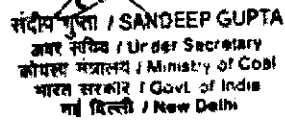 संदीप गुप्ता / SANDEEP GUPTA
अवर सचिव / Under Secretary
कोयला मंत्रालय / Ministry of Coal
भारत सरकार / Govt. of India
नई दिल्ली / New Delhi